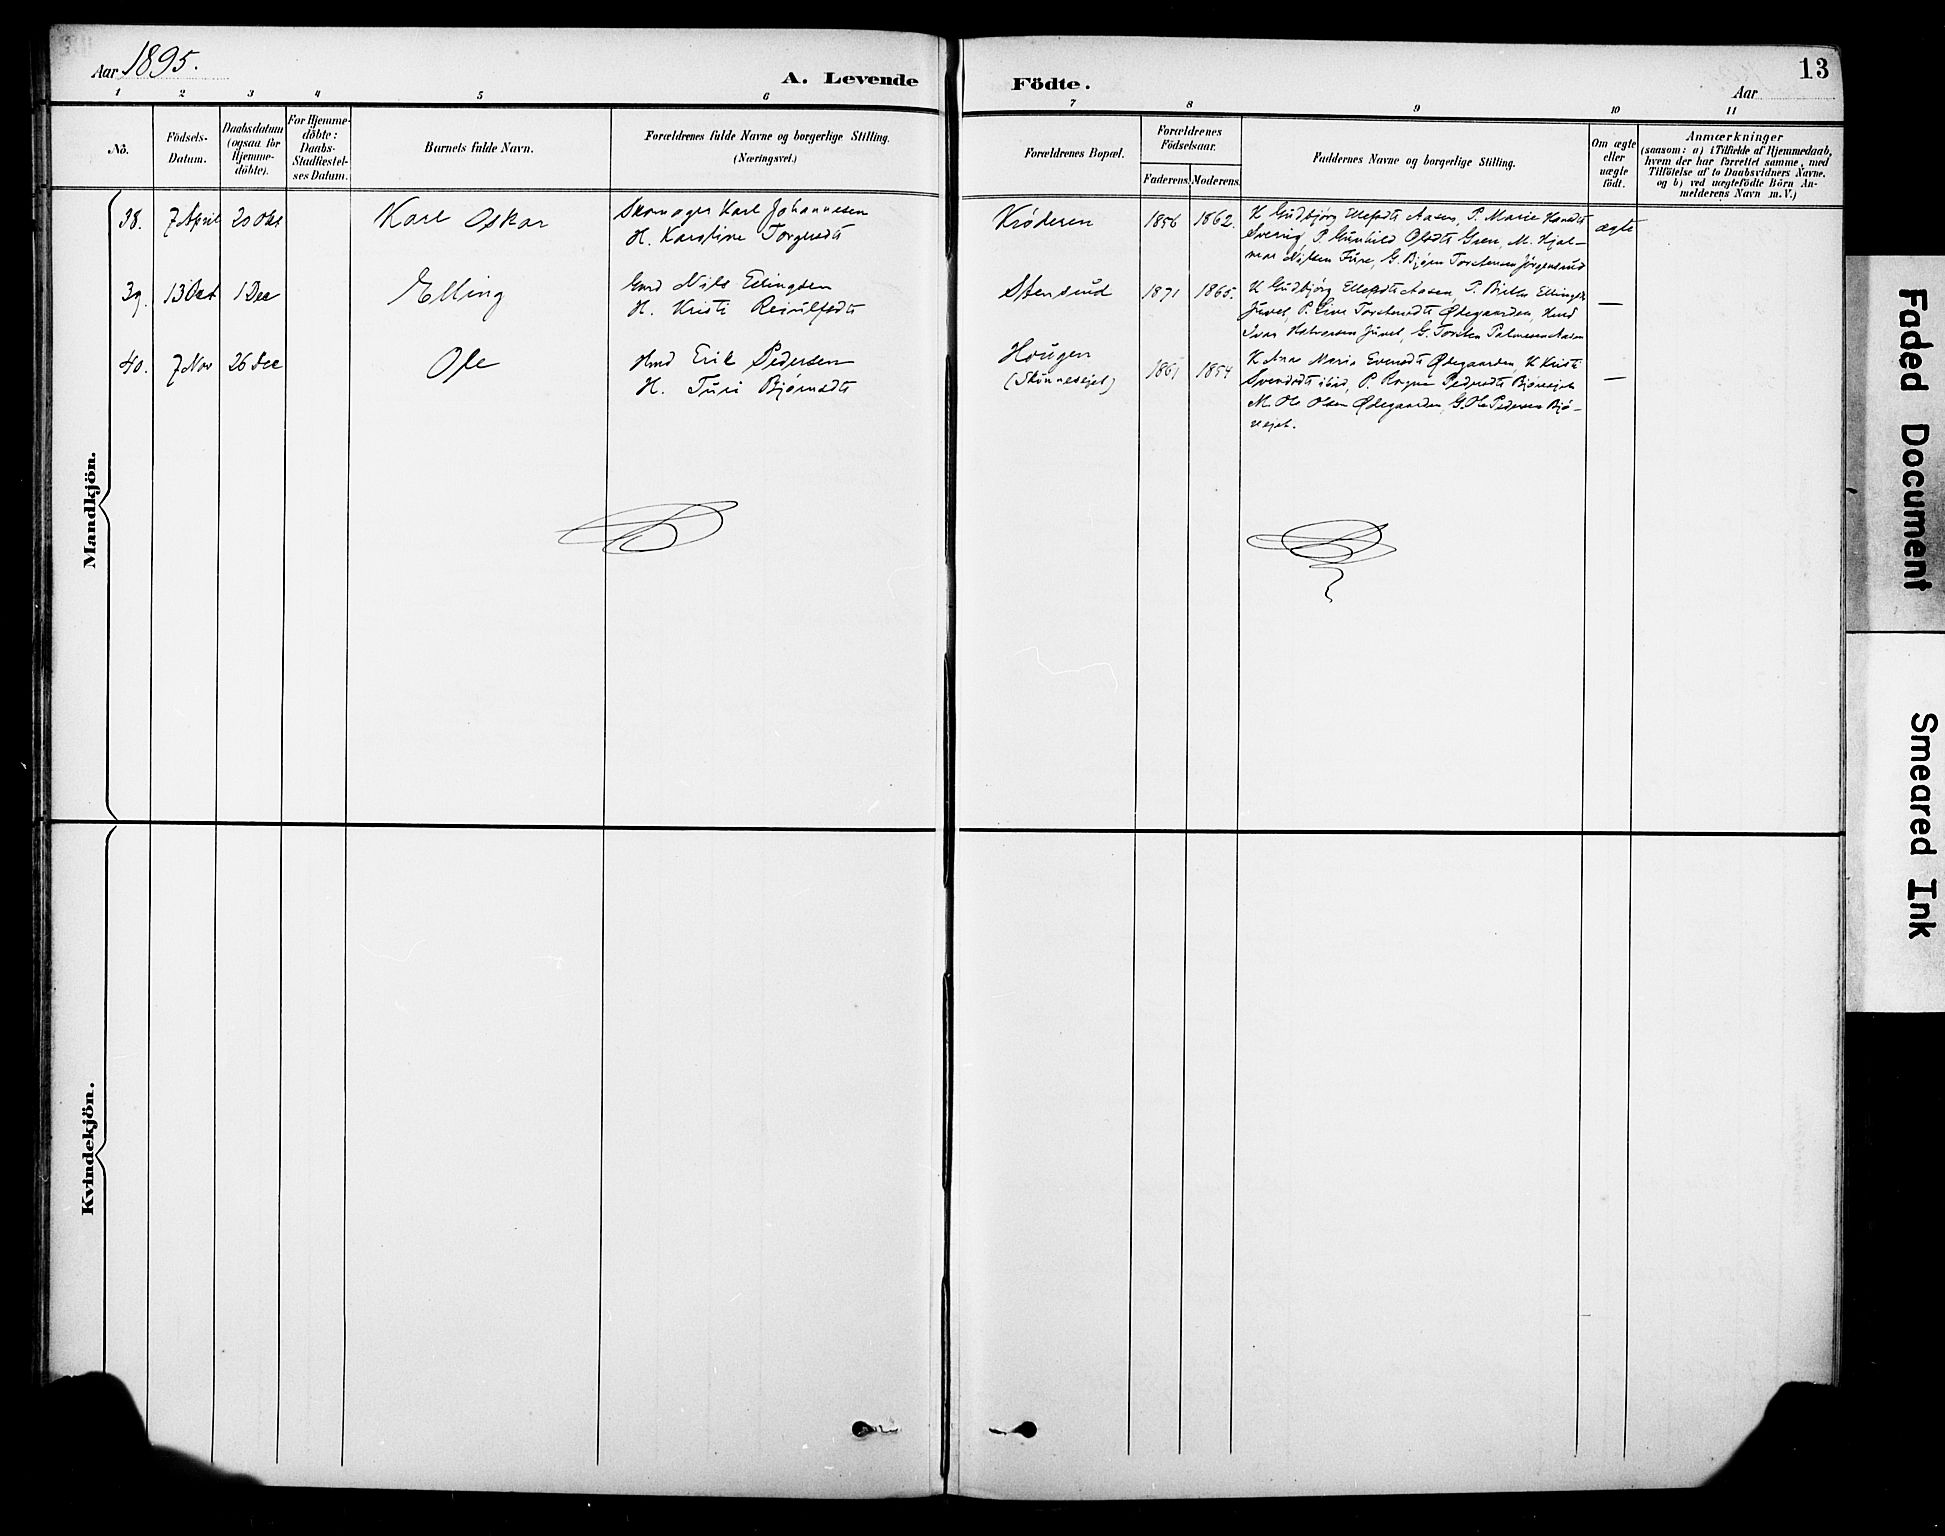 Aar 1895.
A. Levende Födte.
13
Aar
1 2 3 4 5 6 7 8 9 10 11
No.
Födsels-
Datum.
Daabsdatum
(ogsaa for
Hjemme-
döbte).
For Hjemme-
döbte:
Daabs-
Stadfæstel-
ses Datum.
Barnets fulde Navn.
Forældrenes fulde Navne og borgerlige Stilling.
(Næringsvei.)
Forældrenes Bopæl.
Forældrenes
Födselsaar.
Faderens. Moderens.
Faddernes Navne og borgerlige Stilling.
Om ægte
eller
uægte
födt.
Anmærkninger
(saasom: a) i Tilfælde af Hjemmedaab,
hvem der har forrettet samme, med
Tilföielse af to Daabsvidners Navne,
og b) ved uægtefödte Börn An-
melderens Navn m. V.)
Mandkjön.
38. 7 April 20 Okt Karl Oskar
Skomager Karl Johannesen
H. Karoline Torgersdt
Krøderen 1856 1862.
K Gudbjørg Ellefsdt Aasen, P. Marie
P. Gunhild Olsdt Green, M. Hjal-
mar Nilsen Fure, G. Bjørn Torstensen Jørgensrud
ægte
39. 13 Oct 1 Dec Elling
Gmd Nils Ellingsen
H. Kristi Reiulfsdt
Stensrud 1871 1865.
K Gudbjørg Ellefsdt Aasen, P. Ellingsdt
Juvet, P. Live Torstensdt Ødegaarden,
Ivar Halvorsen Juvet, G. Torsten Palmesen Aasen
—
40. 7 Nov 26 Dec Ole
Hmd Erik Pedersen
H. Turi Bjørnsdt
Hougen
1861 1854
K Anne Maria Evensdt Ødegaarden, K Kristi
Svendsdt ibid, P. Ragne Pedersdt
M. Ole Olsen Ødegaarden, G. Ole Pedersen Bjø-
—
Kvindekjön.
Faded Document
Smeared Ink